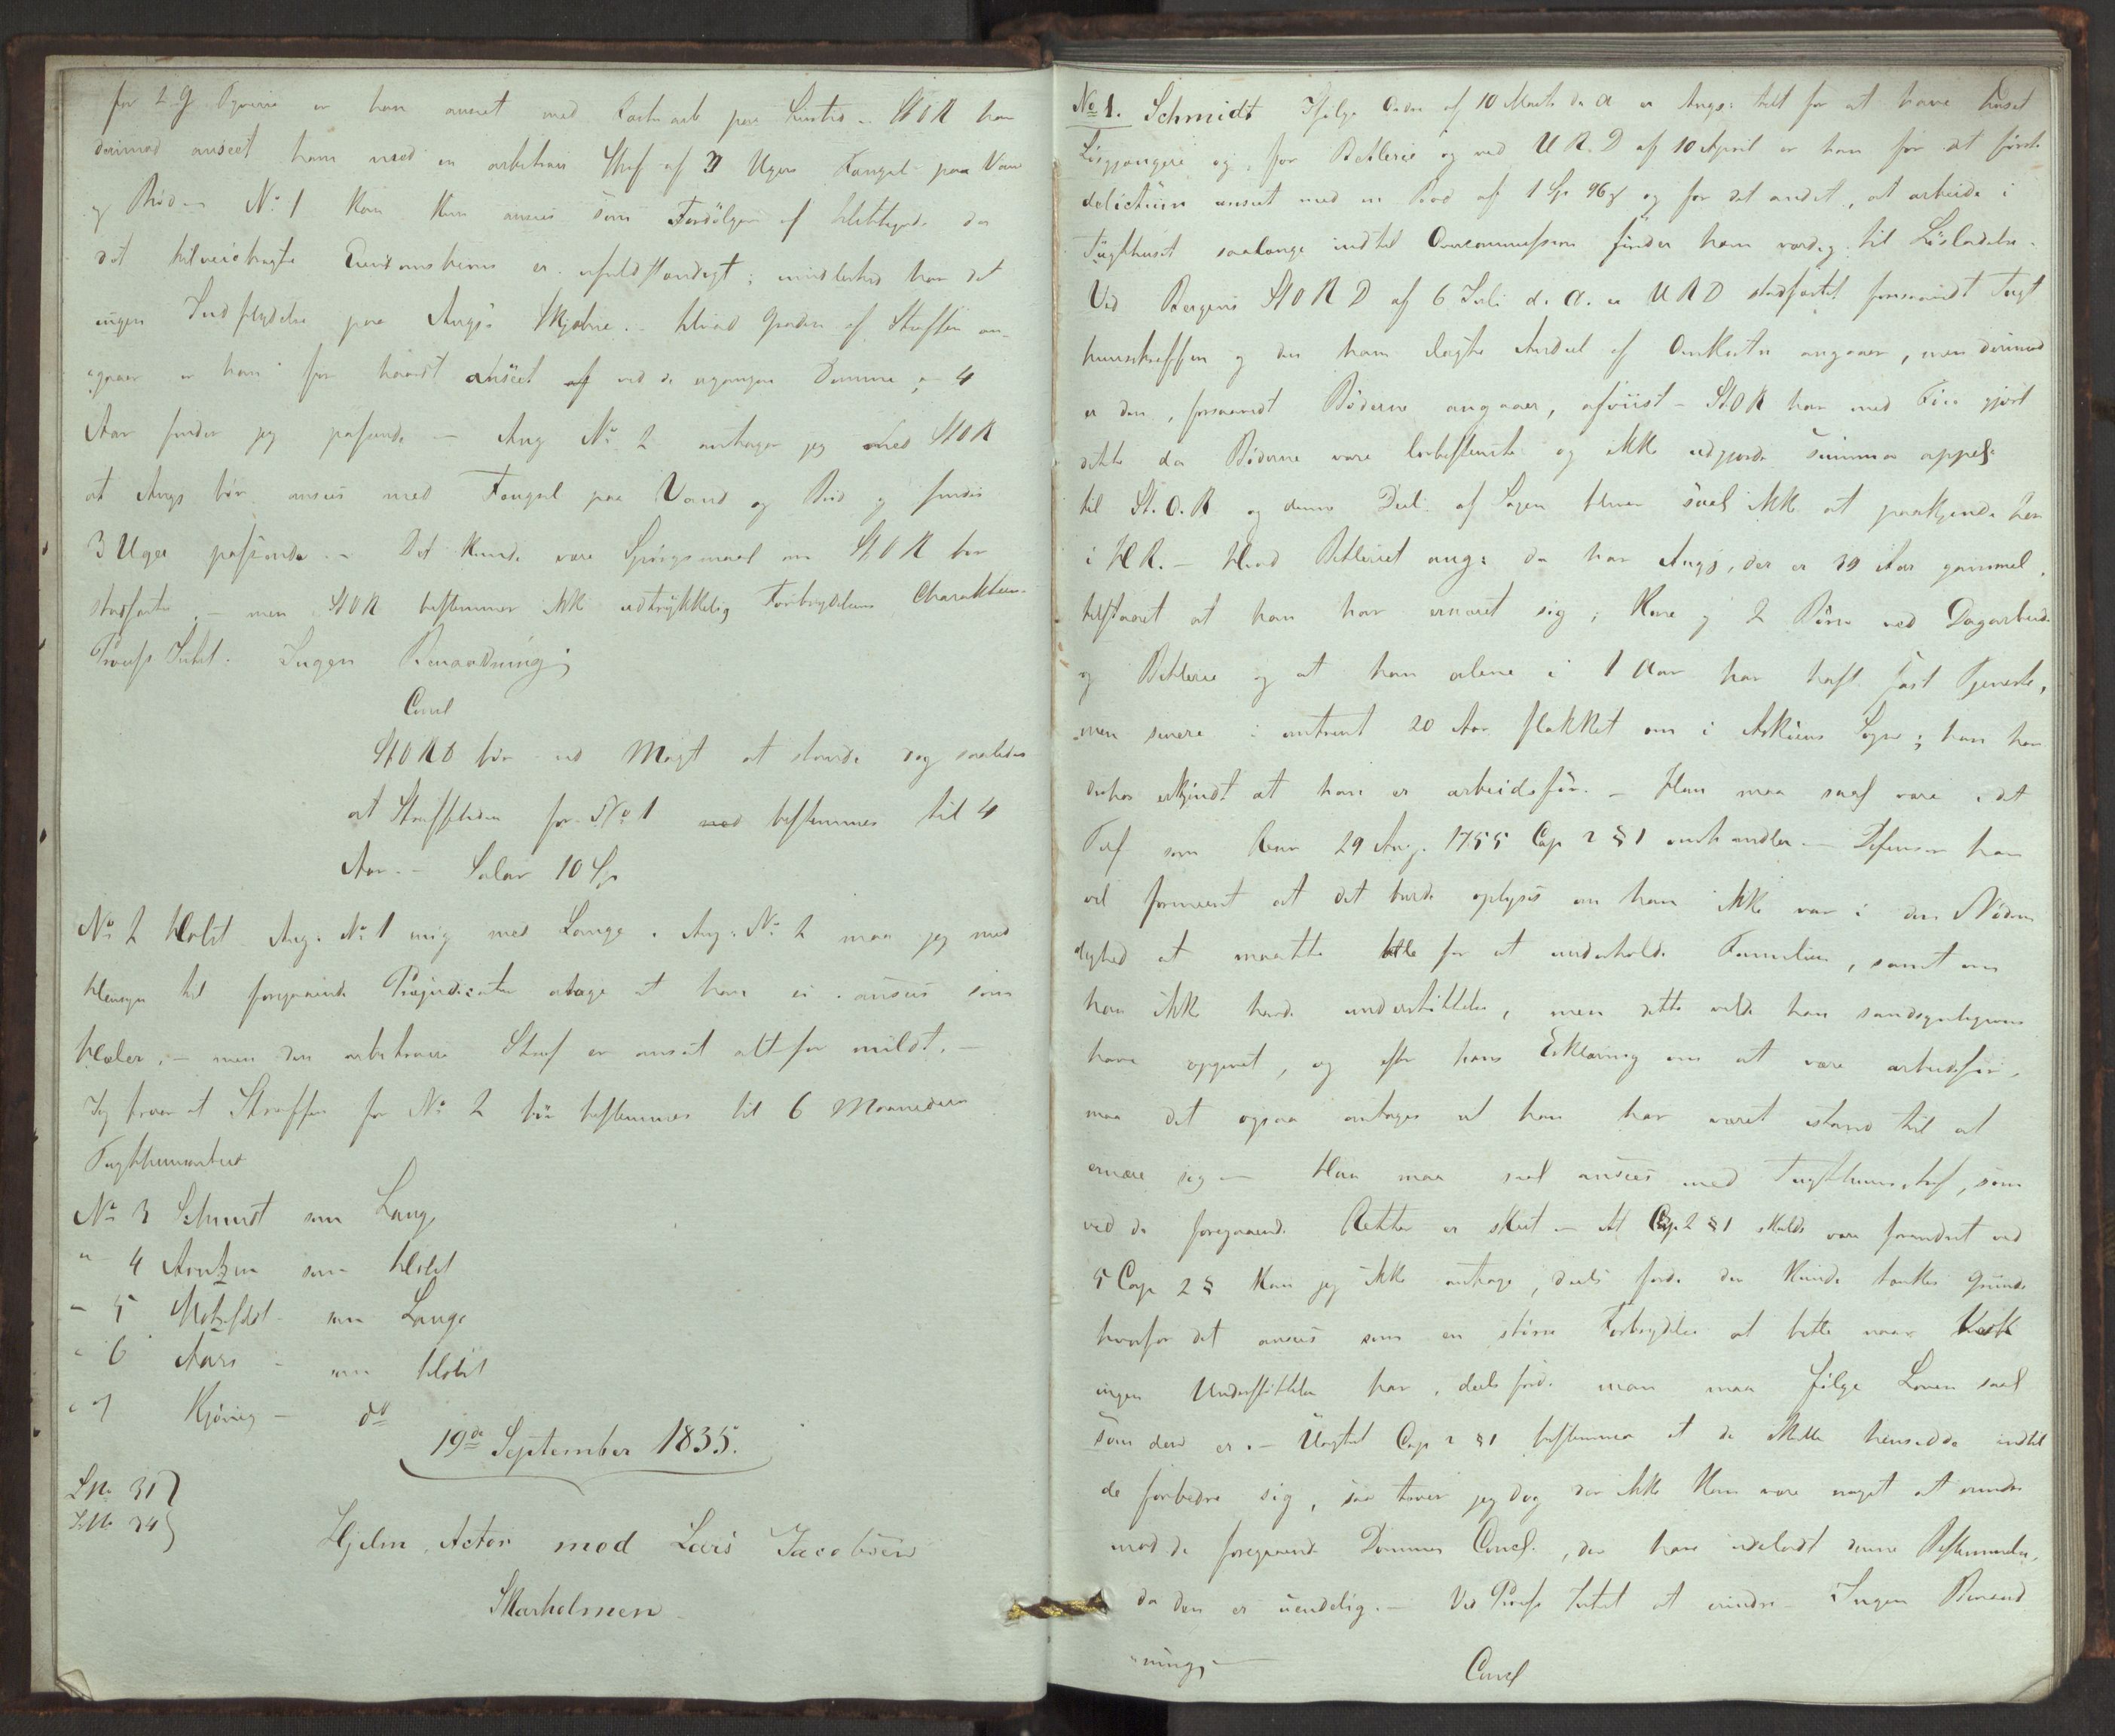 for 2 G Tyverie er han anseet med Fæstn arb paa Livstid. StOR har
derimod anseet ham med en arbitrær Straf af 3 Ugers Fængsel paa Vand
og Brød. No 1 kan kun ansees som Fordølger af
det tilveiebragte er ufuldstændigt; imidlertid har det
ingen Indflydelse paa Angs Skjæbne. Hvad Graden af Straffen an-
gaaer er han for haardt anseet af ved de ergangne Domme, 4
Aar finder jeg passende – Ang No 2 antager jeg med StOR
at Angs bør ansees med Fængsel paa Vand og Brød og findes
3 Uger passende. – Det kunde være Spørgsmaal om StOR bør
stadfæstes – men StOR bestemmer ikke udtrykkelig Forbrydelsens Charakteer.
Process Intet. Ingen Benaadning;
Concl
StORD bør ved Magt at stande dog saaledes
at Straffetiden for No 1 med bestemmes til 4
Aar. – Salær 10 Sp
No 2 Holst Ang: No 1 enig med Lange. Ang: No 2 maa jeg med
Hensyn til foregaaende Præjudicater antage at han ei ansees som
Hæler; – men den arbitraire Straf er ansat alt for mildt. –
Jeg troer at Straffen for No 2 bør bestemmes til 6 Maaneders
Tugthuusarbeid
No 3 Schmidt som Lange
" 4 Arntzen som Holst
– 5 Motzfeldt som Lange
" 6 Aars – som Holst
" 7 Kjønig – do
19de September 1835.
LNo 31
INo 34
Hjelm, Actor mod Lars Jacobsen
Skarholmen
No 1. Schmidt Ifølge Ordre af 10 Marts d. A. er Angs: tilt for at have huset
Løsgjængere og for Betlerie og ved U.R.D af 10 April er han for det første
delictum anseet med en Bod af 1 Sp 96 s og for det andet, at arbeide i
Tugthuset saalænge indtil Overcommissionen finder ham værdig til Løsladelse.
Ved Bergens StORD af 6 Juli d. A. er URD stadfæstet forsaavidt Tugt
huusstraffen og den ham ilagte Andeel af Omkostn angaaer, men derimod
er den, forsaavidt Bøderne angaaer, afviist – StOR har med Føie gjort
dette da Bøderne vare lovbestemte og ikke udgjorde summa appel:
til St.O.R og denne Deel af Sagen bliver saal ikke at paakjende her
i HR. – Hvad Betleriet ang: da har Angs, der er 39 Aar gammel,
tilstaaet at han har ernæret sig, Kone og 2 Børn ved Dagarbeide
og Betlerie og at han alene i 1 Aar har haft fast Tjeneste,
men senere i omtrent 20 Aar flakket om i Askøens Sogn; han har
derhos erkjendt at han er arbeidsfør. – Han maa saal være i det
Tilf som Anor 29 Aug. 1755 Cap 2 § 1 omhandler. – Defensor har
vel formeent at det burde oplyses om han ikke var i den Nødven
dighed at maatte betle for at underholde Familien, samt om
han ikke havde understøttelse, men dette vilde han sandsynligviis
have opgivet, og efter hans Erklæring om at være arbeidsfør,
maa det ogsaa antages at han har været istand til at
ernære sig – Han maa saal ansees med Tugthuusstraf, som
ved de foregaaende Retter er skeet – At Cap. 2 § 1 skulde være forandret ved
5 Cap 2 § kan jeg ikke antage, deels fordi der kunde tænkes Grunde
hvorfor det ansees som en større Forbrydelse at betle naar
ingen Understøttelse har, deels fordi man maa følge Loven saal
som den er. – Uagtet Cap 2 § 1 bestemmer at de skulle hensidde indtil
de forbedre sig, saa troer jeg dog der ikke kan være noget at erindre
mod de foregaaende Dommes Concl., der have udeladt denne Bestemmelse,
da den er uendelig. – Ved Process Intet at erindre – Ingen Benaad
ning, –
Concl